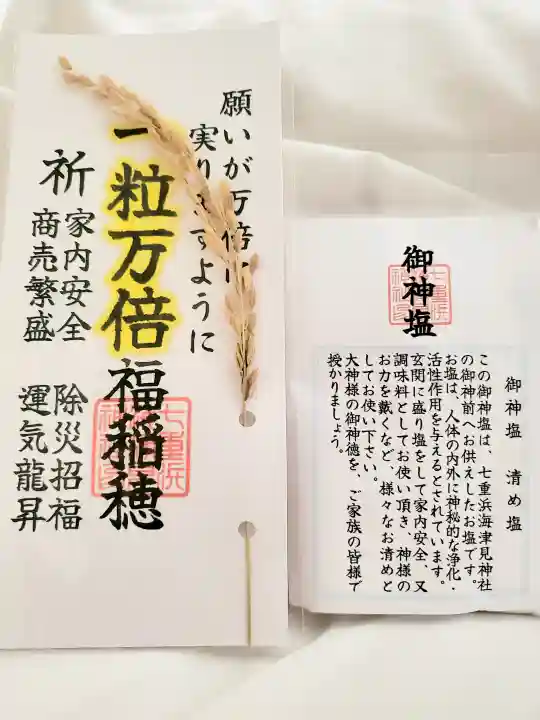 願いが万倍に
実りますように
一粒万倍
福稲穂
祈
家内安全
商売繁盛
除災招福
運気龍昇
七重浜
御神塩
七重浜
御神塩　清め塩
この御神塩は、七重浜海津見神社
の御神前へお供えしたお塩です。
お塩は、人体の内外に神秘的な浄化・
活性作用を与えるとされています。
玄関に盛り塩をして家内安全、又
調味料としてお使い頂き、神様の
お力を戴くなど、様々なお清めと
してお使い下さい。
大神様の御神徳を、ご家族の皆様で
授かりましょう。